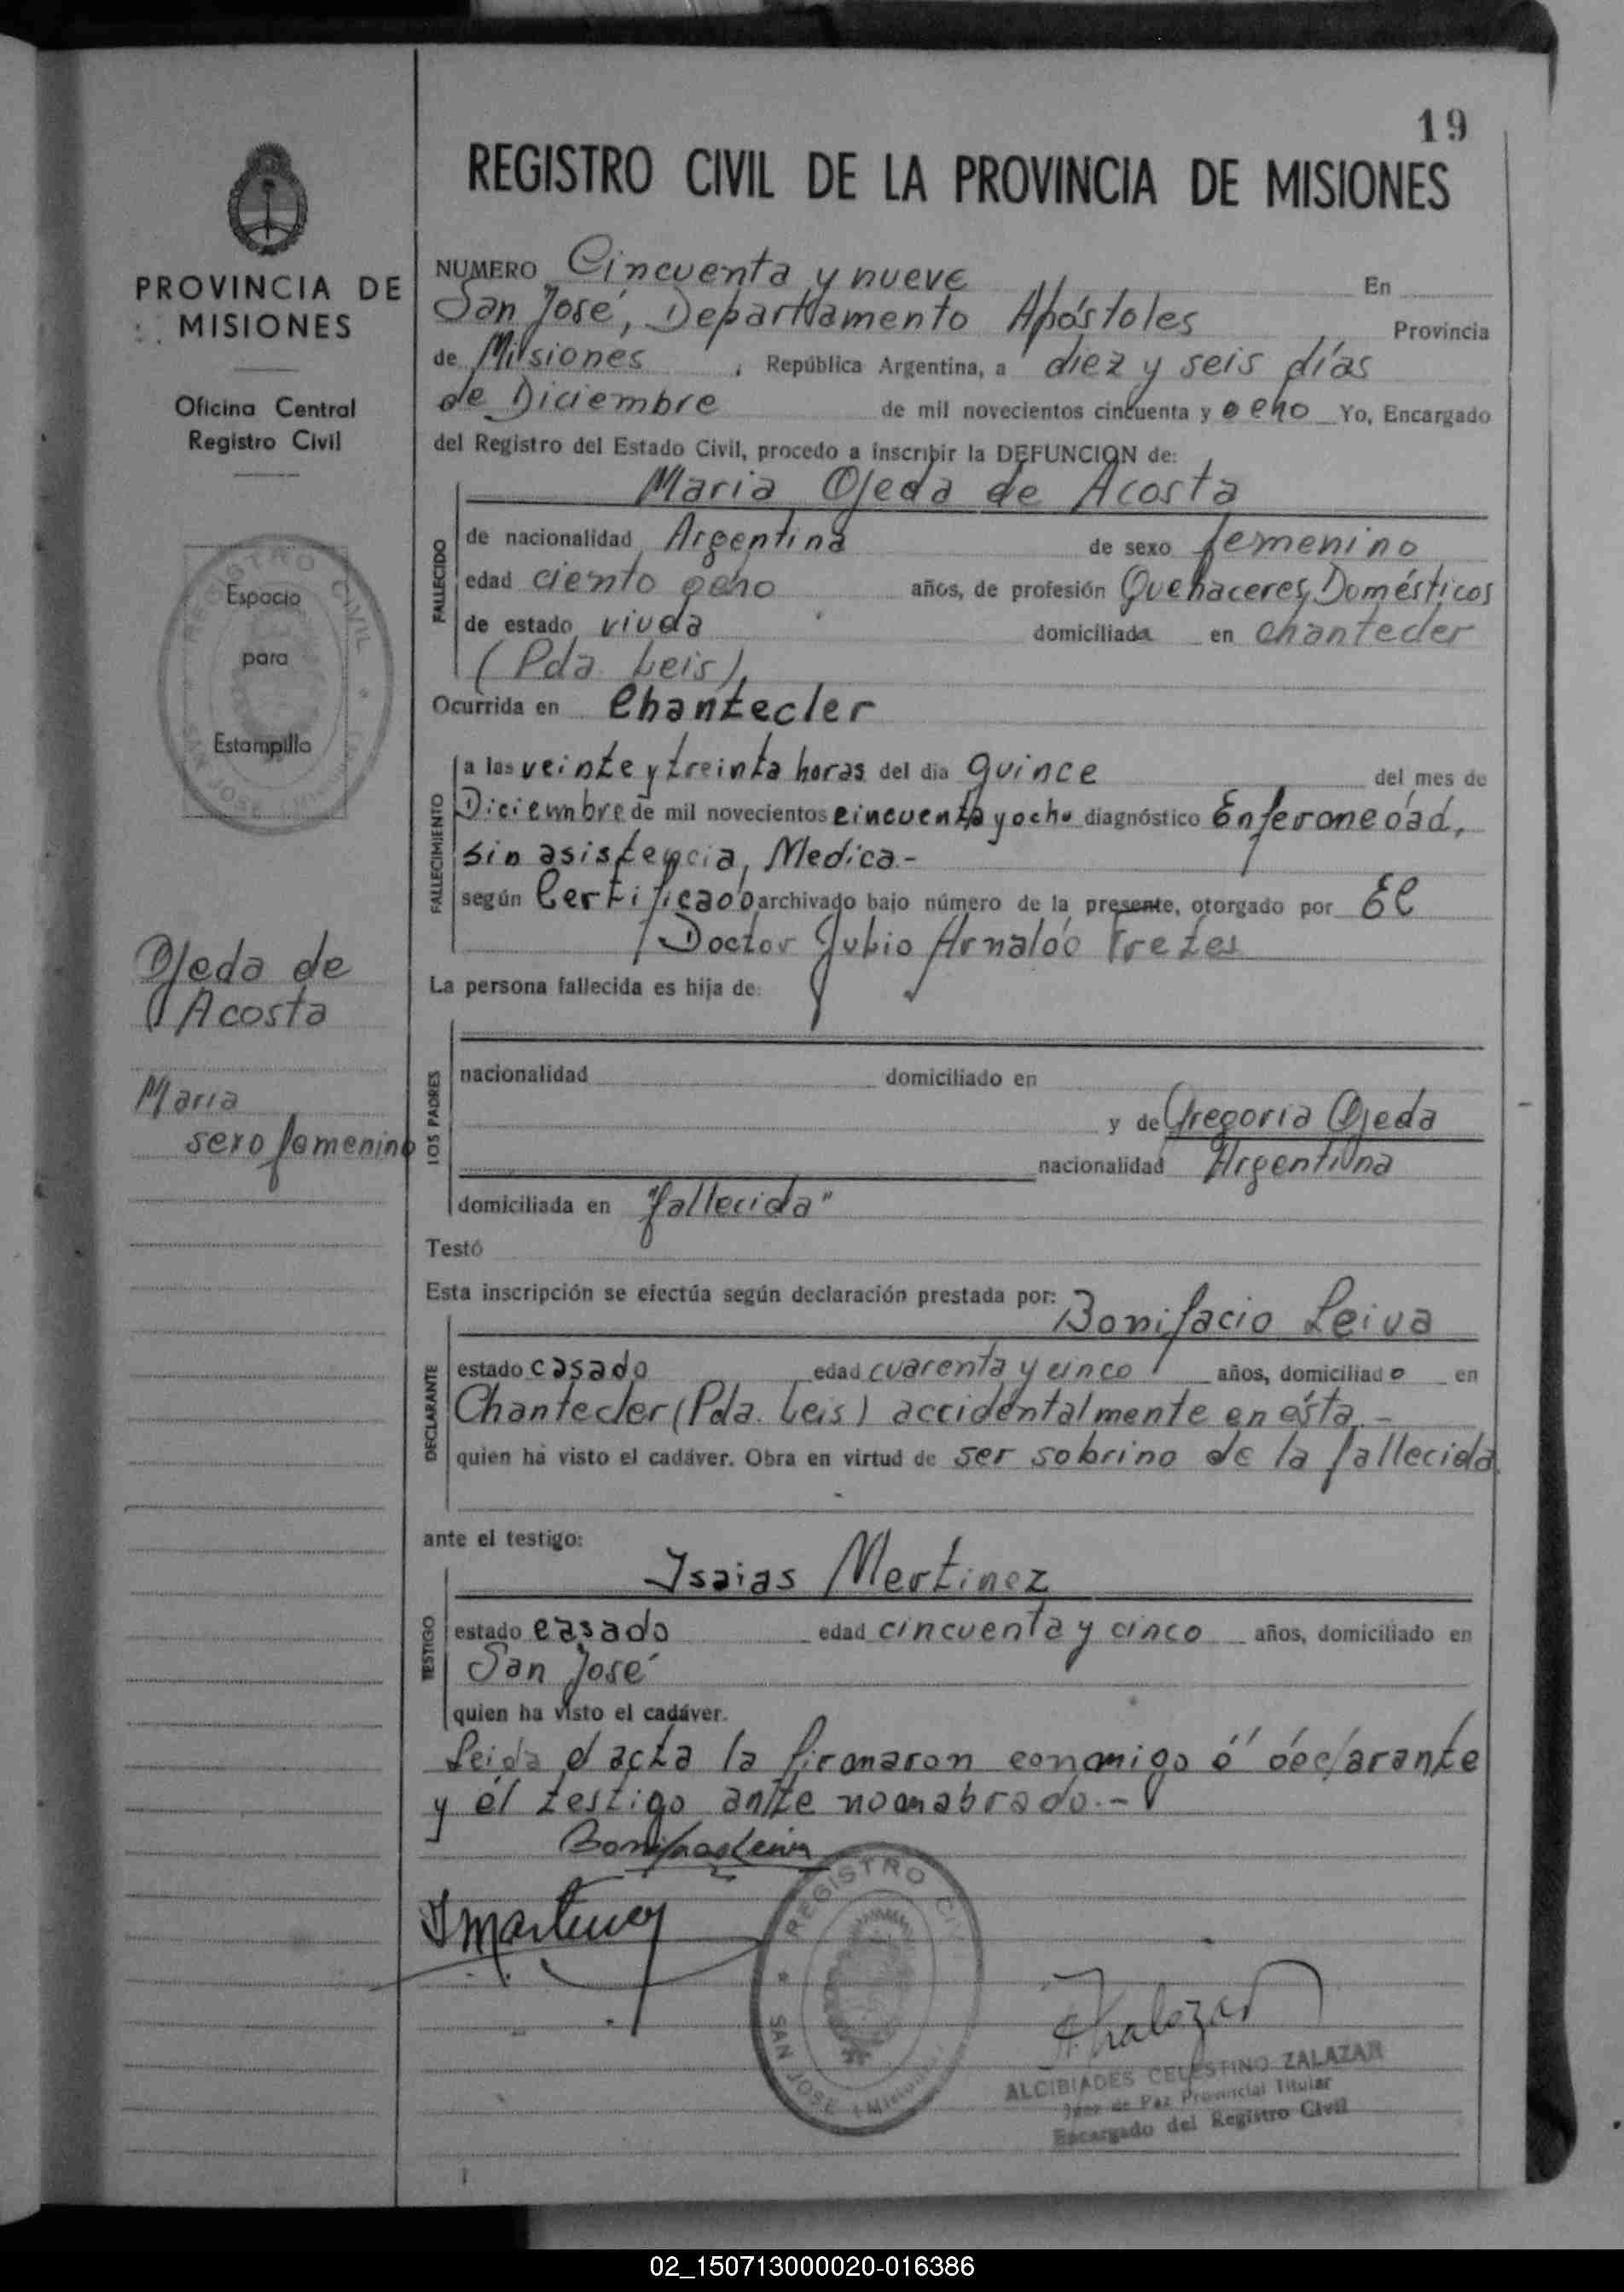 19
REGISTRO CIVIL DE LA PROVINCIA DE MISIONES
PROVINCIA DE
MISIONES
Oficina Central
Registro Civil
REGISTRO CIVIL
SAN JOSE (Misiones)
Espacio
para
Estampilla
Ojeda de
Acosta
Maria
sexo femenino
NUMERO Cincuenta y nueve En
San José, Departamento Apóstoles Provincia
de Misiones, República Argentina, a diez y seis días
de Diciembre de mil novecientos cincuenta y ocho Yo, Encargado
del Registro del Estado Civil, procedo a inscribir la DEFUNCION de:
Maria Ojeda de Acosta
FALLECIDO
de nacionalidad Argentina de sexo femenino
edad ciento ocho años, de profesión Quehaceres Domésticos
de estado viuda domiciliada en Chantecler
(Pda. Leis)
Ocurrida en Chantecler
FALLECIMIENTO
a las veinte y treinta horas del dia quince del mes de
Diciembre de mil novecientos cincuenta y ocho diagnóstico Enfermedad,
sin asistencia, Medica.-
según Certificado archivado bajo número de la presente, otorgado por El
Doctor Arnaldo
La persona fallecida es hija de:
LOS PADRES
nacionalidad domiciliado en
y de Gregoria Ojeda
nacionalidad Argentina
domiciliada en "fallecida"
Testó
Esta inscripción se efectúa según declaración prestada por:
Bonifacio Leiva
DECLARANTE
estado casado edad cuarenta y cinco años, domiciliado en
Chantecler (Pda. Leis) accidentalmente en ésta.-
quien ha visto el cadáver. Obra en virtud de ser sobrino de la fallecida
ante el testigo:
Isaias Mertinez
TESTIGO
estado casado edad cincuenta y cinco años, domiciliado en
San José
quien ha visto el cadáver.
Leida el acta la firmaron conmigo é declarante
y él testigo ante nomabrado.-
Bonifacio Leiva
I Martinez
REGISTRO CIVIL
SAN JOSE (Misiones)
A. C. Zalazar
ALCIBIADES CELESTINO ZALAZAR
Juez de Paz Provincial Titular
Encargado del Registro Civil
02_150713000020-016386